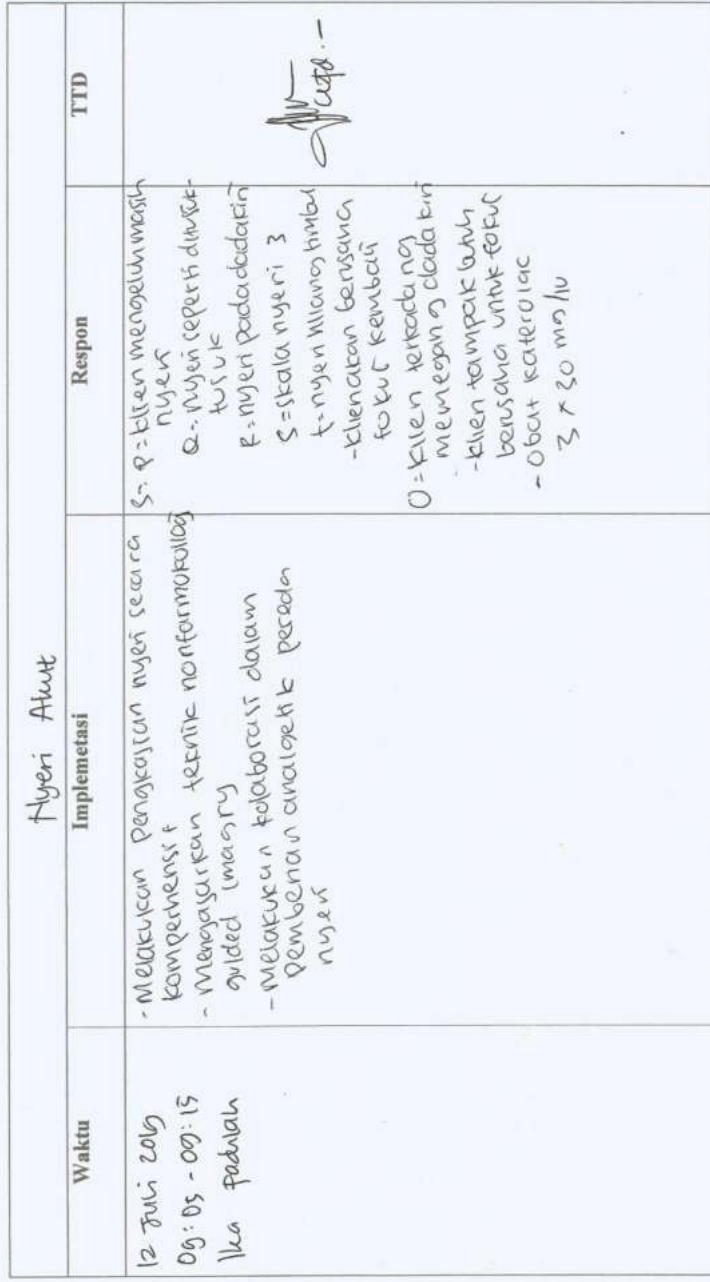 Nyeri Akut
Waktu
Implemetasi
Respon
TTD
12 Juli 2019
09:05 - 09:15
Ika Padilah
- Melakukan pengkajian nyeri secara
komperhensif
- mengajarkan teknik nonfarmokologi
guided imagry
- melakukan kolaborasi dalam
pemberian analgetik pereda
nyeri
S: P = klien mengeluh masih
nyeri
Q = nyeri seperti ditusuk-
tusuk
R = nyeri pada dada kiri
S = skala nyeri 3
t = nyeri hilang timbul
- klien akan berusaha
fokus kembali
O = klien terkadang
memegang dada kiri
- klien tampak
berusaha untuk fokus
- Obat katerolac
3 x 30 mg/iv